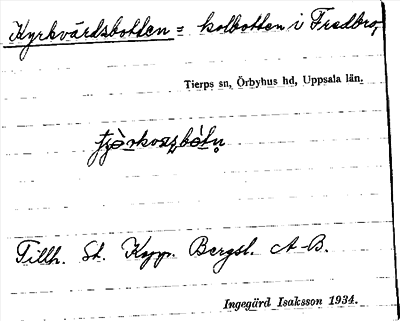 Kyrkvärdsbotten = kolbotten i Fredbro,
Tierps sn, Örbyhus hd, Uppsala län.
Tillh. St. Kopp. Bergsl. A-B.
Ingegärd Isaksson 1934.